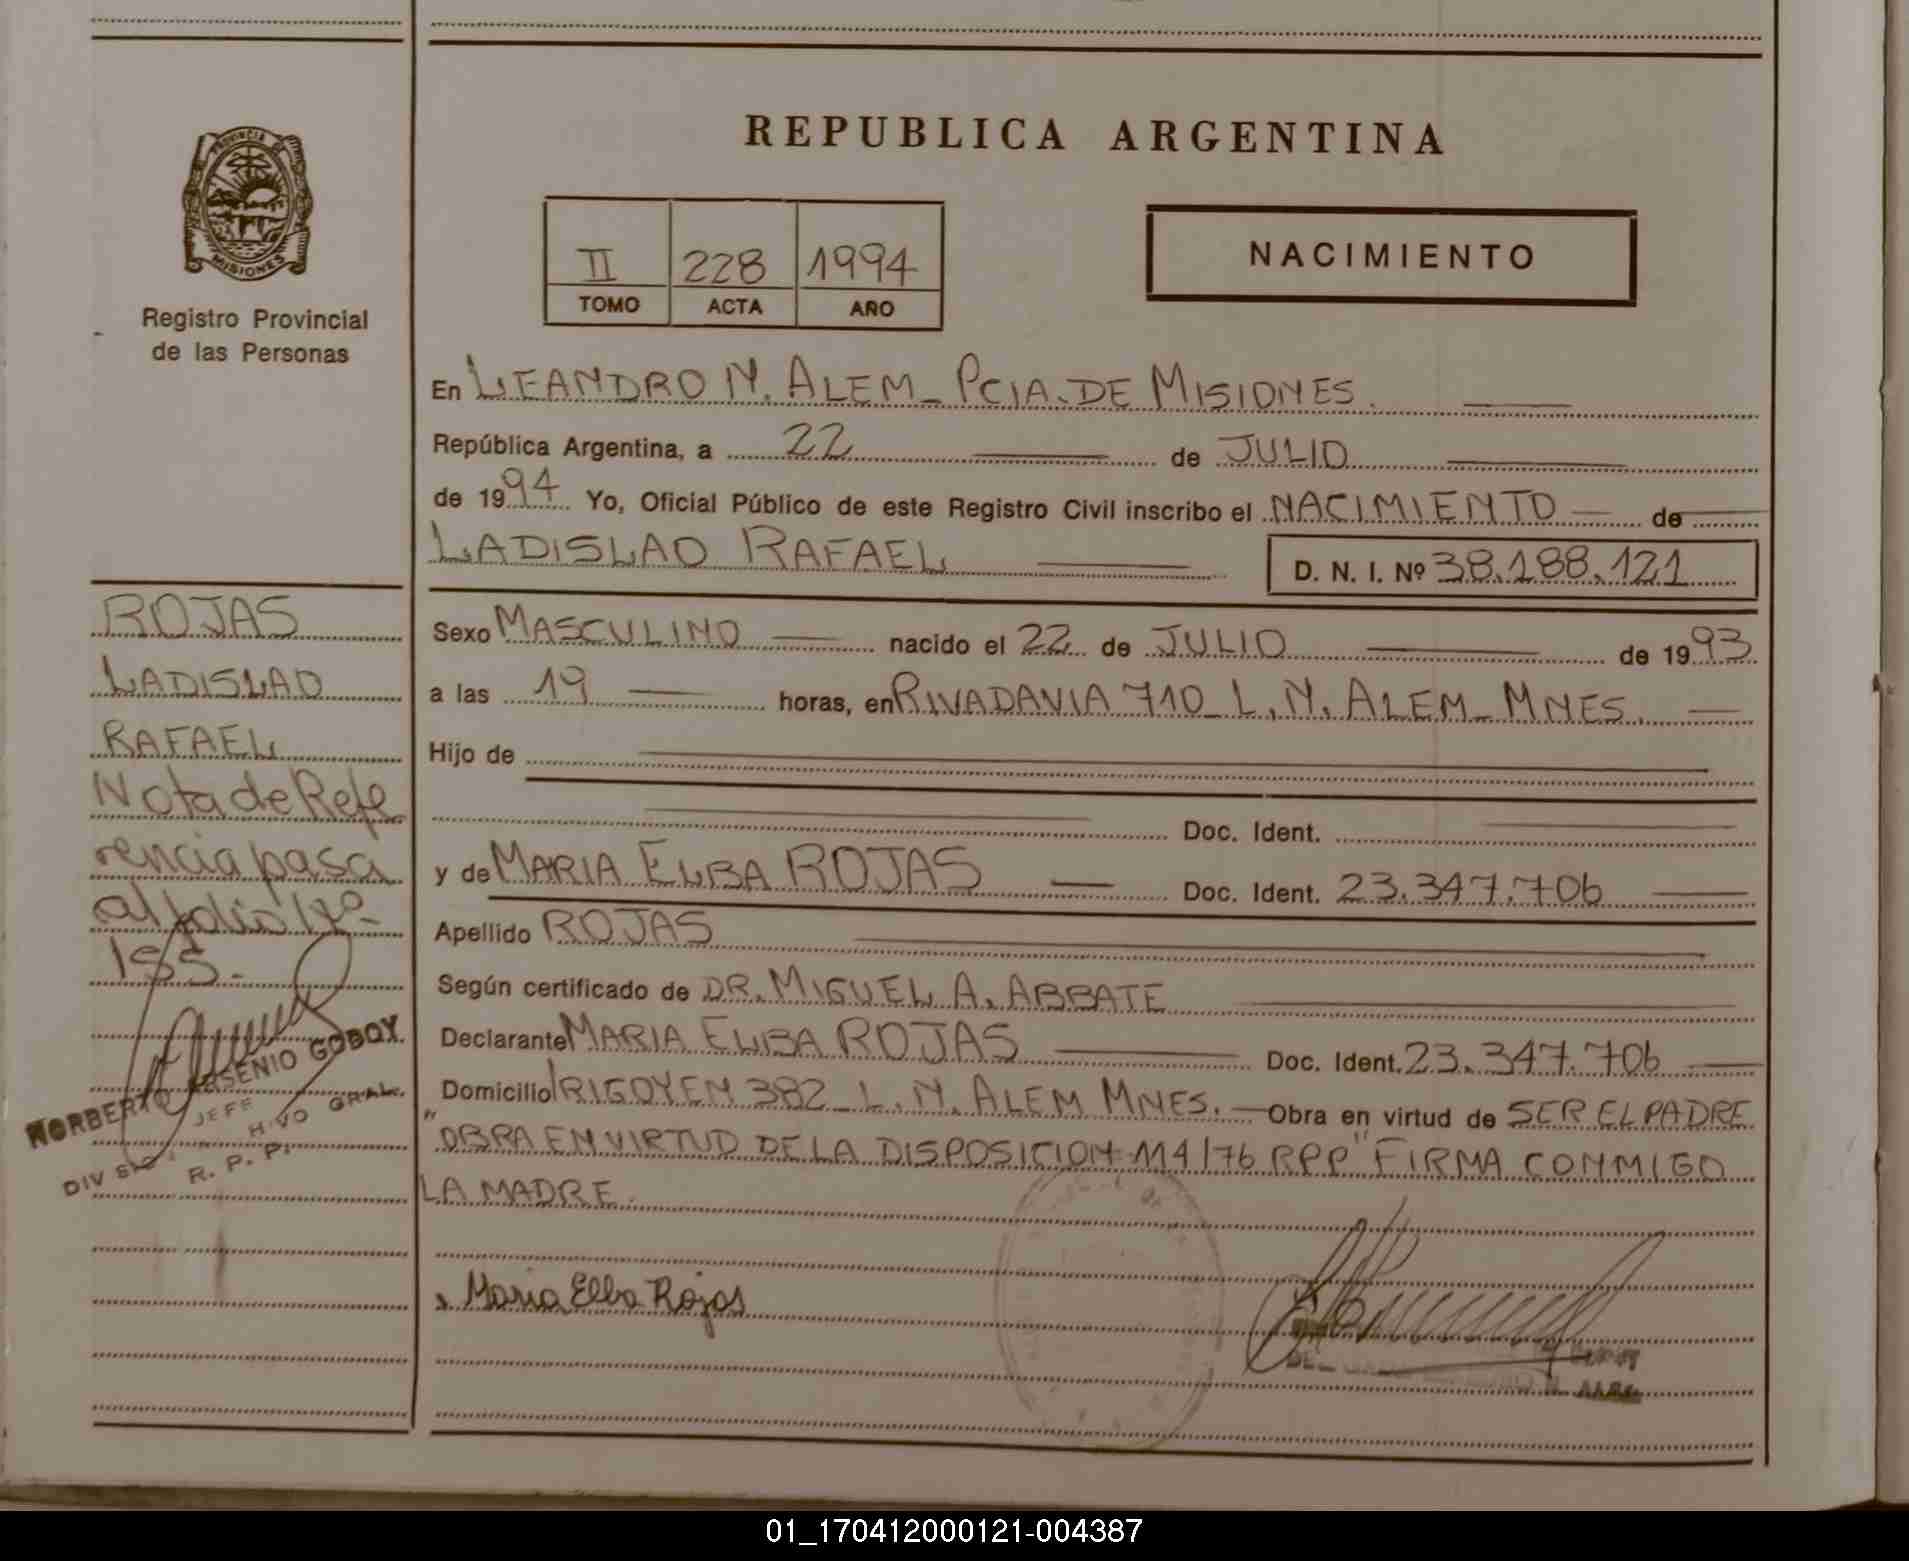 REPUBLICA ARGENTINA
PROVINCIA DE
MISIONES
Registro Provincial
de las Personas
II 228 1994
TOMO ACTA AÑO
NACIMIENTO
En LEANDRO N. ALEM_ PCIA. DE MISIONES.
República Argentina, a 22 de JULIO
de 1994 Yo, Oficial Público de este Registro Civil inscribo el NACIMIENTO de
LADISLAO RAFAEL D. N. I. Nº 38.188.121
Sexo MASCULINO nacido el 22 de JULIO de 1993
a las 19 horas, en RIVADAVIA 710_ L. N. ALEM_ MNES.
Hijo de
Doc. Ident.
y de MARIA ELBA ROJAS Doc. Ident. 23.347.706
Apellido ROJAS
Según certificado de DR. MIGUEL A. ABBATE
Declarante MARIA ELBA ROJAS Doc. Ident. 23.347.706
Domicilio IRIGOYEN 382_ L. N. ALEM MNES. Obra en virtud de SER EL PADRE
"OBRA EN VIRTUD DE LA DISPOSICION 114/76 RPP" FIRMA CONMIGO
LA MADRE.
Maria Elba Rojas
ROJAS
LADISLAO
RAFAEL
Nota de Refe
rencia pasa
al folio Nº
155.
NORBERTO ARSENIO GODOY
JEFE
R. P. P.
01_170412000121-004387